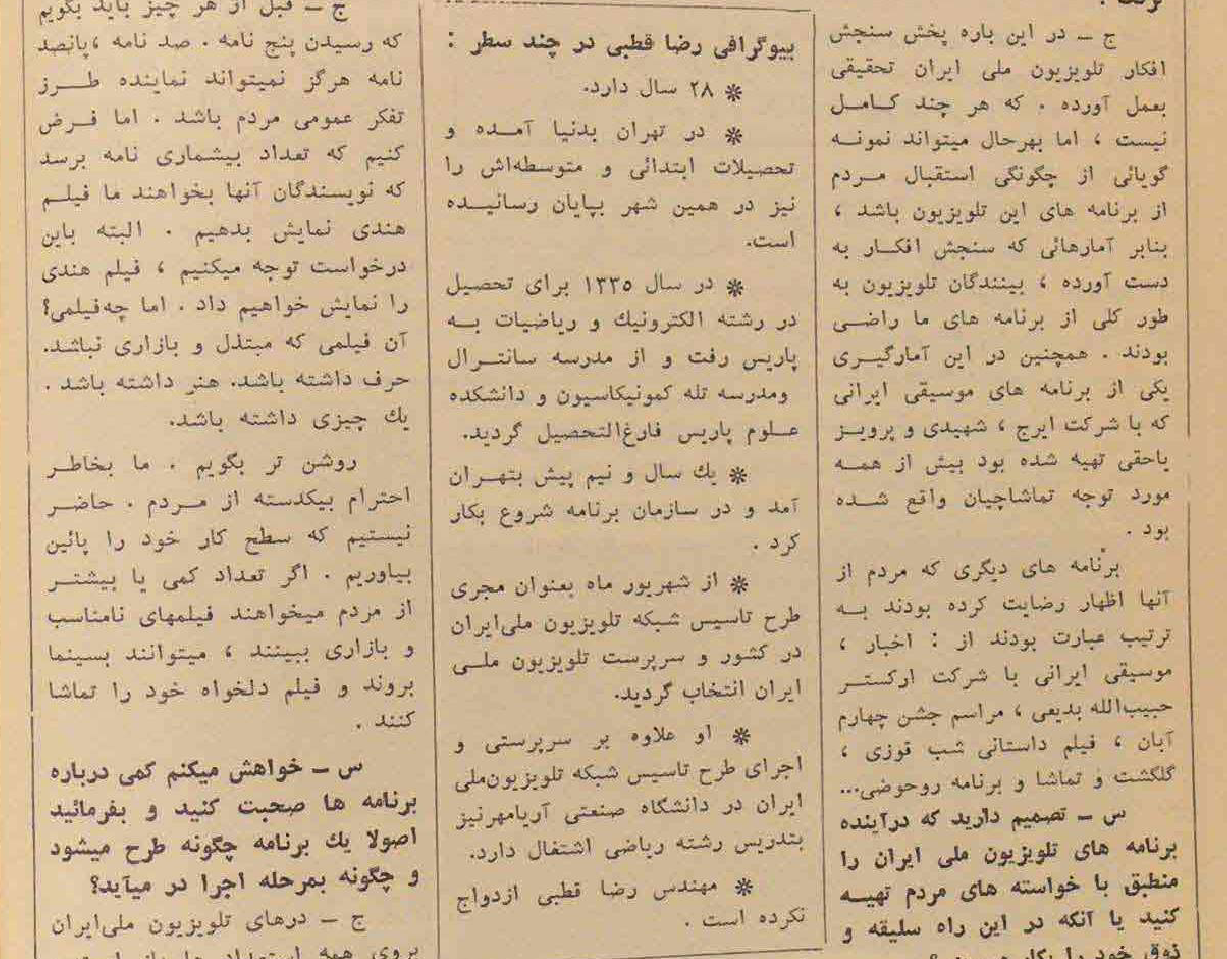 ج ــ در این باره پخش سنجش
افکار تلویزیون ملی ایران تحقیقی
بعمل آورده . که هر چند کــامــل
نیست ، اما بهرحال میتواند نمونــه
گویائی از چگونگی استقبال مــردم
از برنامه های این تلویزیون باشد ،
بنابر آمارهائی که سنجش افکــار به
دست آورده ، بینندگان تلویزیون به
طور کلی از برنامه های ما راضــی
بودند . همچنین در این آمارگیــری
یکی از برنامه های موسیقی ایرانی
که با شرکت ایرج ، شهیدی و پرویــز
یاحقی تهیه شده بود بیش از همــه
مورد توجه تماشاچیان واقع شــده
بود .
برنامه های دیگری که مردم از
آنها اظهار رضایت کرده بودند بــه
ترتیب عبارت بودند از : اخبار ،
موسیقی ایرانی با شرکت ارکستــر
حبیب‌الله بدیعی ، مراسم جشن چهارم
آبان ، فیلم داستانی شب قوزی ،
گلگشت و تماشا و برنامه روحوضی...
س ــ تصمیم دارید که درآینده
برنامه های تلویزیون ملی ایران را
منطبق با خواسته های مردم تهیــه
کنید یا آنکه در این راه سلیقه و
ذوق خود را بکار
بیوگرافی رضا قطبی در چند سطر :
* ۲۸ سال دارد.
* در تهران بدنیا آمــده و
تحصیلات ابتدائی و متوسطه‌اش را
نیز در همین شهر بپایان رسانیــده
است.
* در سال ۱۳۳۵ برای تحصیل
در رشته الکترونیك و ریاضیات بــه
پاریس رفت و از مدرسه سانتــرال
ومدرسه تله کمونیکاسیون و دانشکده
علــوم پاریس فارغ‌التحصیل گردید.
* یك سال و نیم پیش بتهــران
آمد و در سازمان برنامه شروع بکار
کرد .
* از شهریور ماه بعنوان مجری
طرح تاسیس شبکه تلویزیون ملی‌ایران
در کشور و سرپرست تلویزیون ملــی
ایران انتخاب گردید.
* او علاوه بر سرپرستی و
اجرای طرح تاسیس شبکه تلویزیون‌ملی
ایران در دانشگاه صنعتی آریامهرنیز
بتدریس رشته ریاضی اشتغال دارد.
* مهندس رضا قطبی ازدواج
نکرده است .
ج ــ قبل از هر چیز باید بگویم
که رسیدن پنج نامه . صد نامه ،پانصد
نامه هرگز نمیتواند نماینده طــرز
تفکر عمومی مردم باشد . اما فــرض
کنیم که تعداد بیشماری نامه برسد
که نویسندگان آنها بخواهند ما فیلــم
هندی نمایش بدهیم . البته باین
درخواست توجه میکنیم ، فیلم هندی
را نمایش خواهیم داد . اما چه‌فیلمی؟
آن فیلمی که مبتذل و بازاری نباشد.
حرف داشته باشد. هنر داشته باشد .
یك چیزی داشته باشد.
روشن تر بگویم . ما بخاطــر
احترام بیکدسته از مــردم . حاضــر
نیستیم که سطح کار خود را پائین
بیاوریم . اگر تعداد کمی یا بیشتــر
از مردم میخواهند فیلمهای نامناسب
و بازاری ببینند ، میتوانند بسینما
بروند و فیلم دلخواه خود را تماشا
کنند .
س ــ خواهش میکنم کمی درباره
برنامه ها صحبت کنید و بفرمائید
اصولا یك برنامه چگونه طرح میشود
و چگونه بمرحله اجرا در میآید؟
ج ــ درهای تلویزیون ملی‌ایران
بروی همه